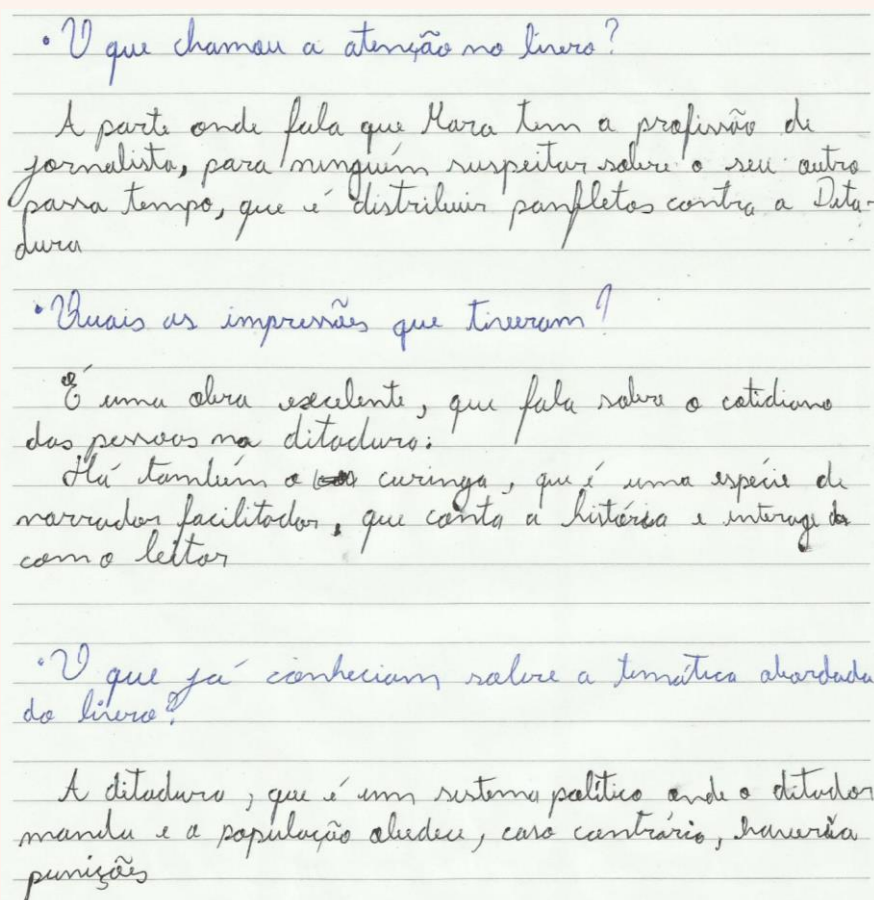 • O que chamou a atenção no livro?
A parte onde fala que Mara tem a profissão de
jornalista, para ninguém suspeitar sobre o seu outro
passa tempo, que é distribuir panfletos contra a Dita-
dura
• Quais as impressões que tiveram?
É uma obra excelente, que fala sobre o cotidiano
das pessoas na ditadura:
Há também o curinga, que é uma espécie de
narrador facilitador, que conta a história e interage
com o leitor
• O que já conheciam sobre a temática abordada
do livro?
A ditadura, que é um sistema político onde o ditador
manda e a população obedece, caso contrário, haveria
punições